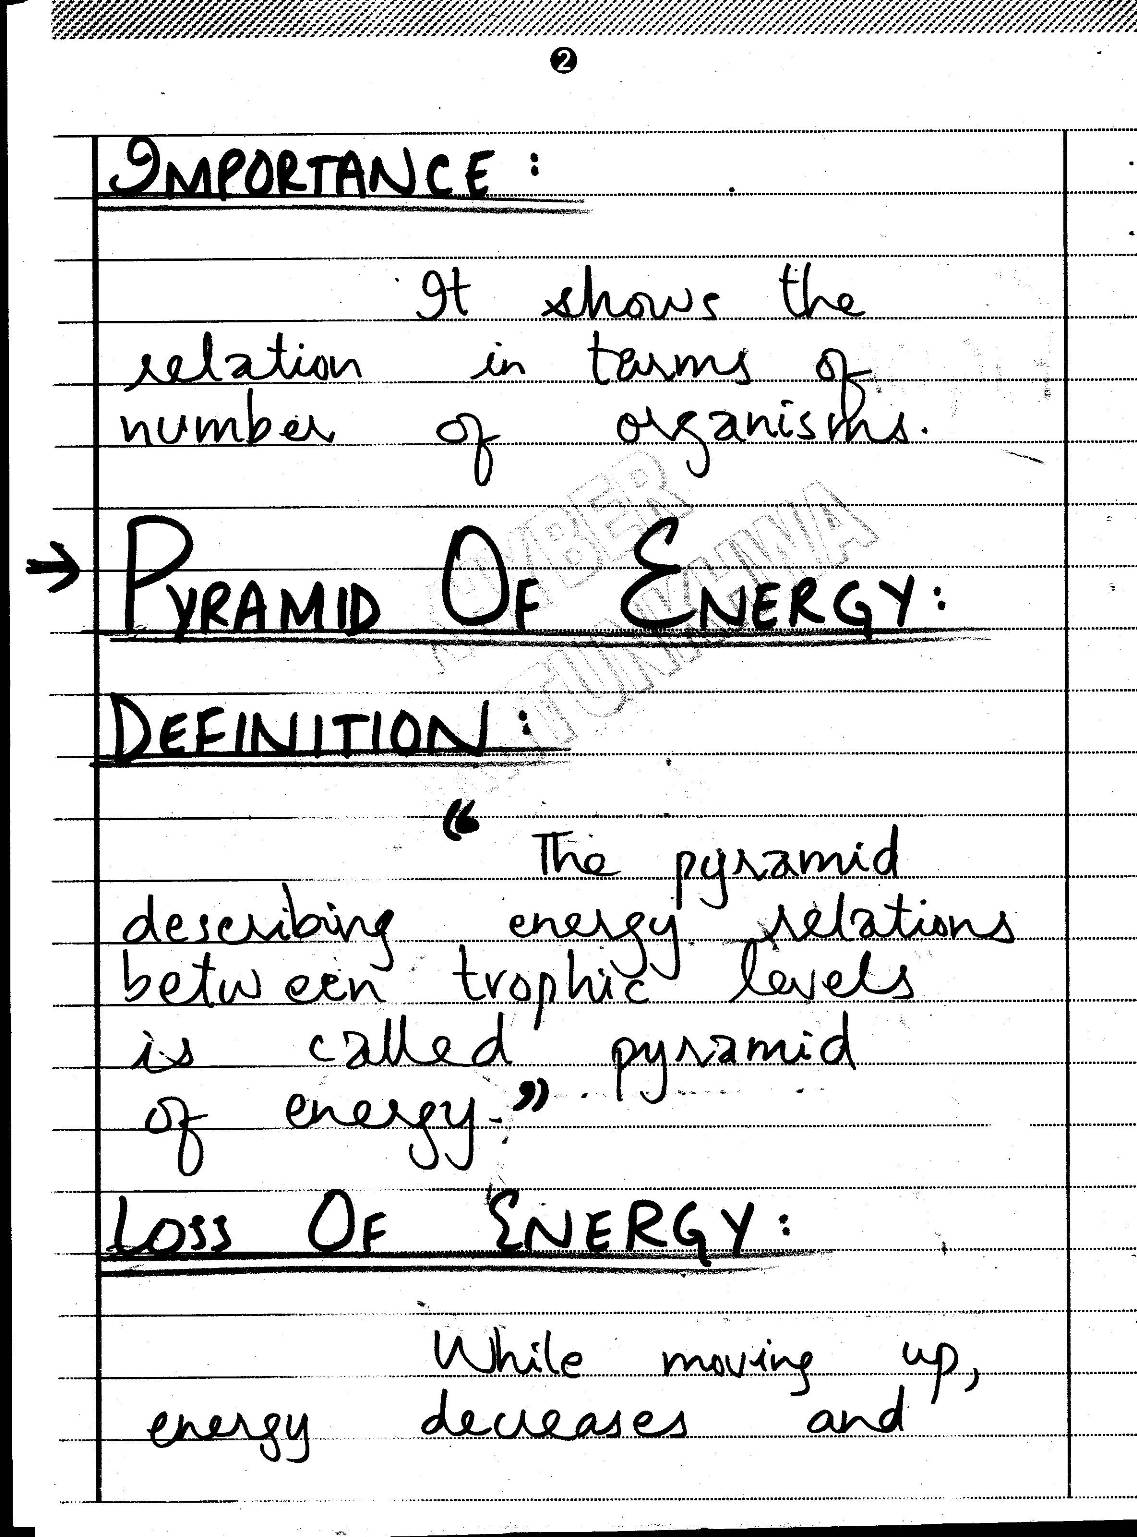 2
IMPORTANCE:
It shows the
relation in terms of
number of organisms.
→ PYRAMID OF ENERGY:
DEFINITION:
“ The pyramid
describing energy relations
between trophic levels
is called pyramid
of energy.”
LOSS OF ENERGY:
While moving up,
energy decreases and